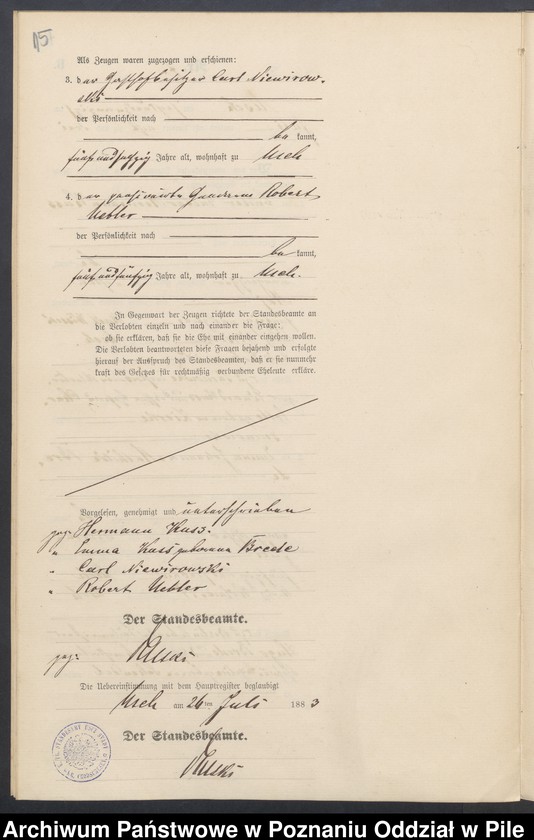 15
Als Zeugen waren zugezogen und erschienen:
3. der Gasthofbesitzer Carl Niewirow-
ski
der Persönlichkeit nach
be kannt,
fünf und Jahre alt, wohnhaft zu Usch
4. der pensionirte Gendarm Robert
Uebler
der Persönlichkeit nach
be kannt,
fünf und fünfzig Jahre alt, wohnhaft zu Usch.
In Gegenwart der Zeugen richtete der Standesbeamte an
die Verlobten einzeln und nach einander die Frage:
ob sie erklären, daß sie die Ehe mit einander eingehen wollen.
Die Verlobten beantworteten diese Fragen bejahend und erfolgte
hierauf der Ausspruch des Standesbeamten, daß er sie nunmehr
kraft des Gesetzes für rechtmäßig verbundene Eheleute erkläre.
Vorgelesen, genehmigt und unterschrieben
gez. Hermann Kuss.
" Emma Kuss geborene Brede
" Carl Niewirowski
" Robert Uebler
Der Standesbeamte.
gez.
Die Uebereinstimmung mit dem Hauptregister beglaubigt
Usch am 26ten Juli 1883
Der Standesbeamte.
Archiwum Państwowe w Poznaniu Oddział w Pile